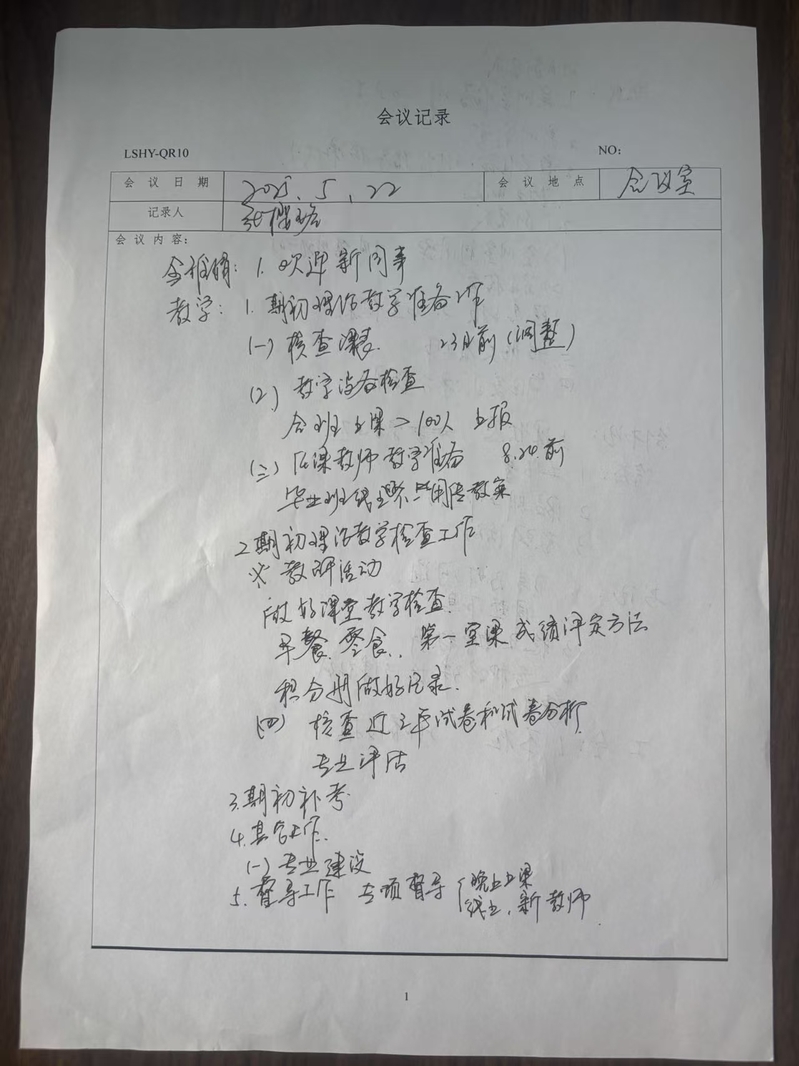 会议记录
LSHY-QR10 NO:
会议日期 2025.5.22 会议地点 会议室
记录人 张
会议内容:
1. 欢迎新同事
教学: 1. 期初课后教学准备工作
(一) 核查课表 23日前(调整)
(2) 教学设备检查
合班上课>100人 上报
(三) 任课教师教学准备 8.20前
毕业班线上 教案
2. 期初课后教学检查工作
※ 教研活动
做好课堂教学检查.
早餐、零食、第一堂课,成绩评定方法
积分册做好记录.
(四) 核查近三年试卷和试卷分析
专业评估
3. 期初补考
4. 其它工作.
(一) 专业建设
5. 督导工作 专项督导 { 晚上上课
线上, 新教师
1